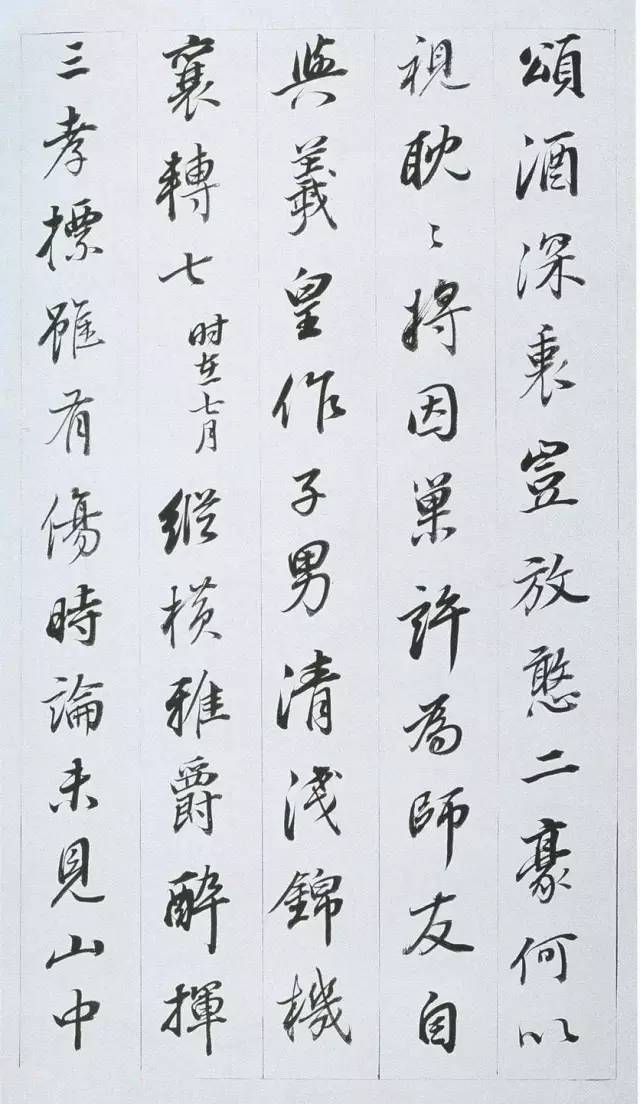 頌酒深衷豈放憨二豪何以
視耽〻將因巢許為師友自
與羲皇作子男清淺錦機
襄轉七时在七月縱横雅爵醉揮
三孝標雖有傷時論未見山中